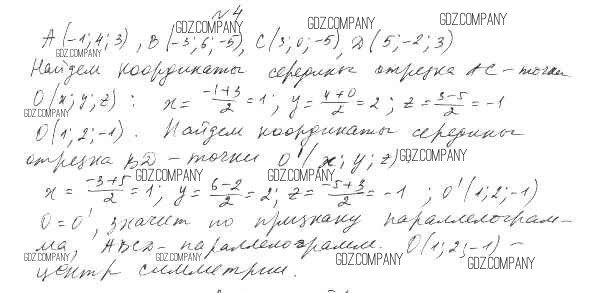 № 4
A(-1;4;3), B(-3;6;-5), C(3;0;-5), D(5;-2;3)
Найдем координаты середины отрезка AC - точки
O(x;y;z): x = \frac{-1+3}{2} = 1; y = \frac{4+0}{2} = 2; z = \frac{3-5}{2} = -1
O(1;2;-1). Найдем координаты середины
отрезка BD - точки O'(x;y;z).
x = \frac{-3+5}{2} = 1; y = \frac{6-2}{2} = 2; z = \frac{-5+3}{2} = -1; O'(1;2;-1)
O = O', значит по признаку параллелограм-
ма, ABCD - параллелограмм. O(1;2;-1) -
центр симметрии.
GDZ.COMPANY
GDZ.COMPANY
GDZ.COMPANY
GDZ.COMPANY
GDZ.COMPANY
GDZ.COMPANY
GDZ.COMPANY
GDZ.COMPANY
GDZ.COMPANY
GDZ.COMPANY
GDZ.COMPANY
GDZ.COMPANY